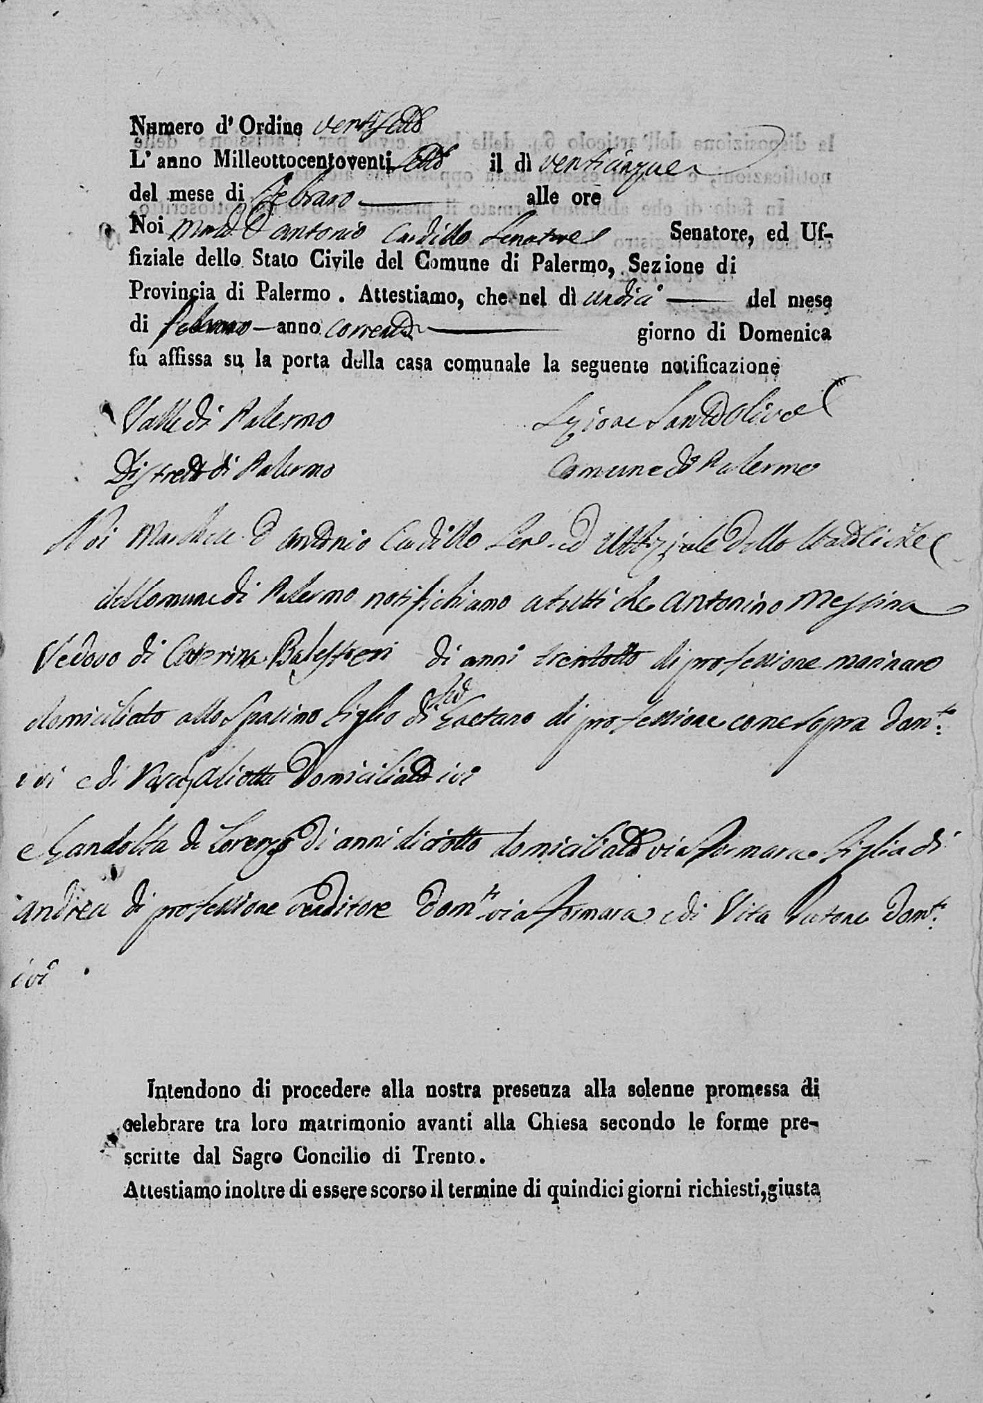 Numero d' Ordine ventisette
L' anno Milleottocentoventisette il dì venticinque
del mese di Febraro alle ore
Noi D. Antonio Cardillo Senatore Senatore, ed Uf-
fiziale dello Stato Civile del Comune di Palermo, Sezione di
Provincia di Palermo. Attestiamo, che nel dì undici del mese
di Febraro anno corrente giorno di Domenica
fu affissa su la porta della casa comunale la seguente notificazione
Valle di Palermo Sezione Santa Oliva
Distretto di Palermo Comune di Palermo
Noi Marchese D. Antonio Cardillo Sen.e ed Uffiziale dello Stato Civile
del Comune di Palermo notifichiamo a tutti che Antonino Messina
Vedovo di Caterina Balestreri di anni trentotto di professione marinaro
domiciliato allo Spasimo figlio di Gaetano di professione come sopra dom.to
ivi e di Aliotta domiciliata ivi
e Gandolfa di Lorenzo di anni diciotto domiciliata via Formara figlia di
Andrea di professione venditore dom.to via Formara e di Vita dom.ta
ivi.
Intendono di procedere alla nostra presenza alla solenne promessa di
celebrare tra loro matrimonio avanti alla Chiesa secondo le forme pre-
scritte dal Sagro Concilio di Trento.
Attestiamo inoltre di essere scorso il termine di quindici giorni richiesti, giusta